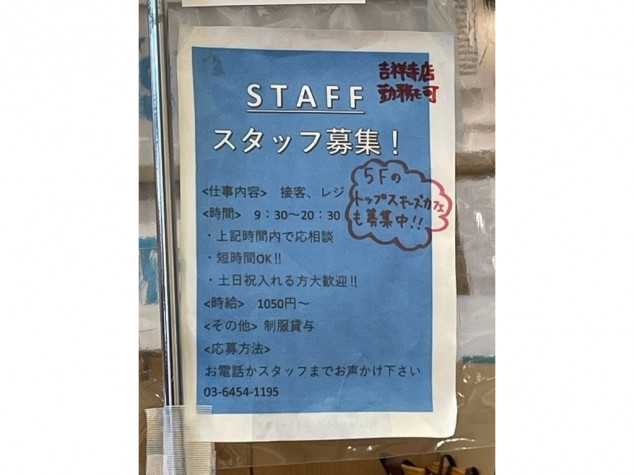 吉祥寺店
勤務も可
STAFF
スタッフ募集！
<仕事内容> 接客、レジ
5Fの
トップスキーズカフェ
も募集中!!
<時間> 9：30～20：30
・上記時間内で応相談
・短時間OK!!
・土日祝入れる方大歓迎!!
<時給> 1050円～
<その他> 制服貸与
<応募方法>
お電話かスタッフまでお声かけ下さい
03-6454-1195